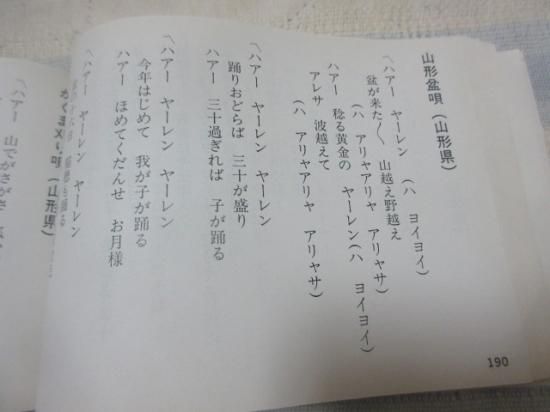 山形盆唄（山形県）
〽ハアー　ヤーレン　（ハ　ヨイヨイ）
盆が来た〳〵　山越え野越え
（ハ　アリャアリャ　アリャサ）
ハアー　稔る黄金の　ヤーレン（ハ　ヨイヨイ）
アレサ　波越えて
（ハ　アリャアリャ　アリャサ）
〽ハアー　ヤーレン　ヤーレン
踊りおどらば　三十が盛り
ハアー　三十過ぎれば　子が踊る
〽ハアー　ヤーレン　ヤーレン
今年はじめて　我が子が踊る
ハアー　ほめてくだんせ　お月様
〽ハアー　ヤーレン　ヤーレン
唄（山形県）
〽ハアー　山でがさがさ
190